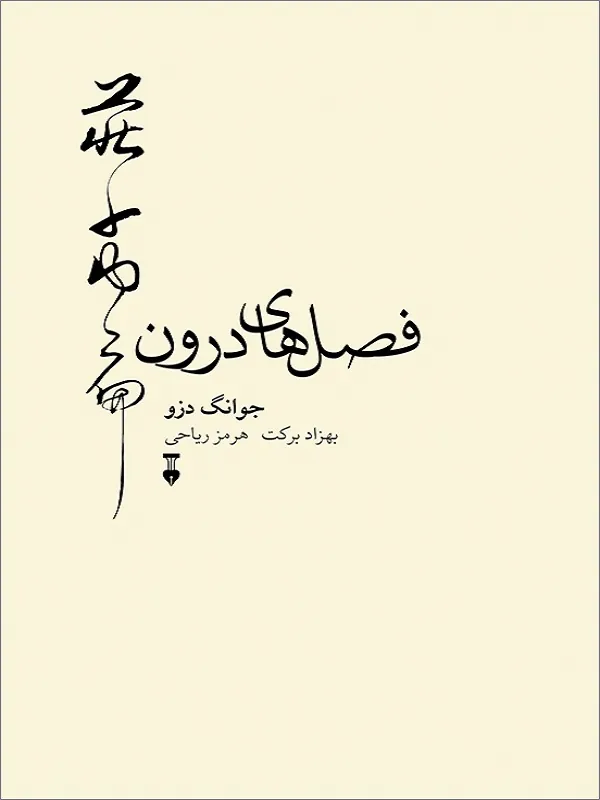 莊子内篇
فصل‌های درون
جوانگ دزو
بهزاد برکت هرمز ریاحی